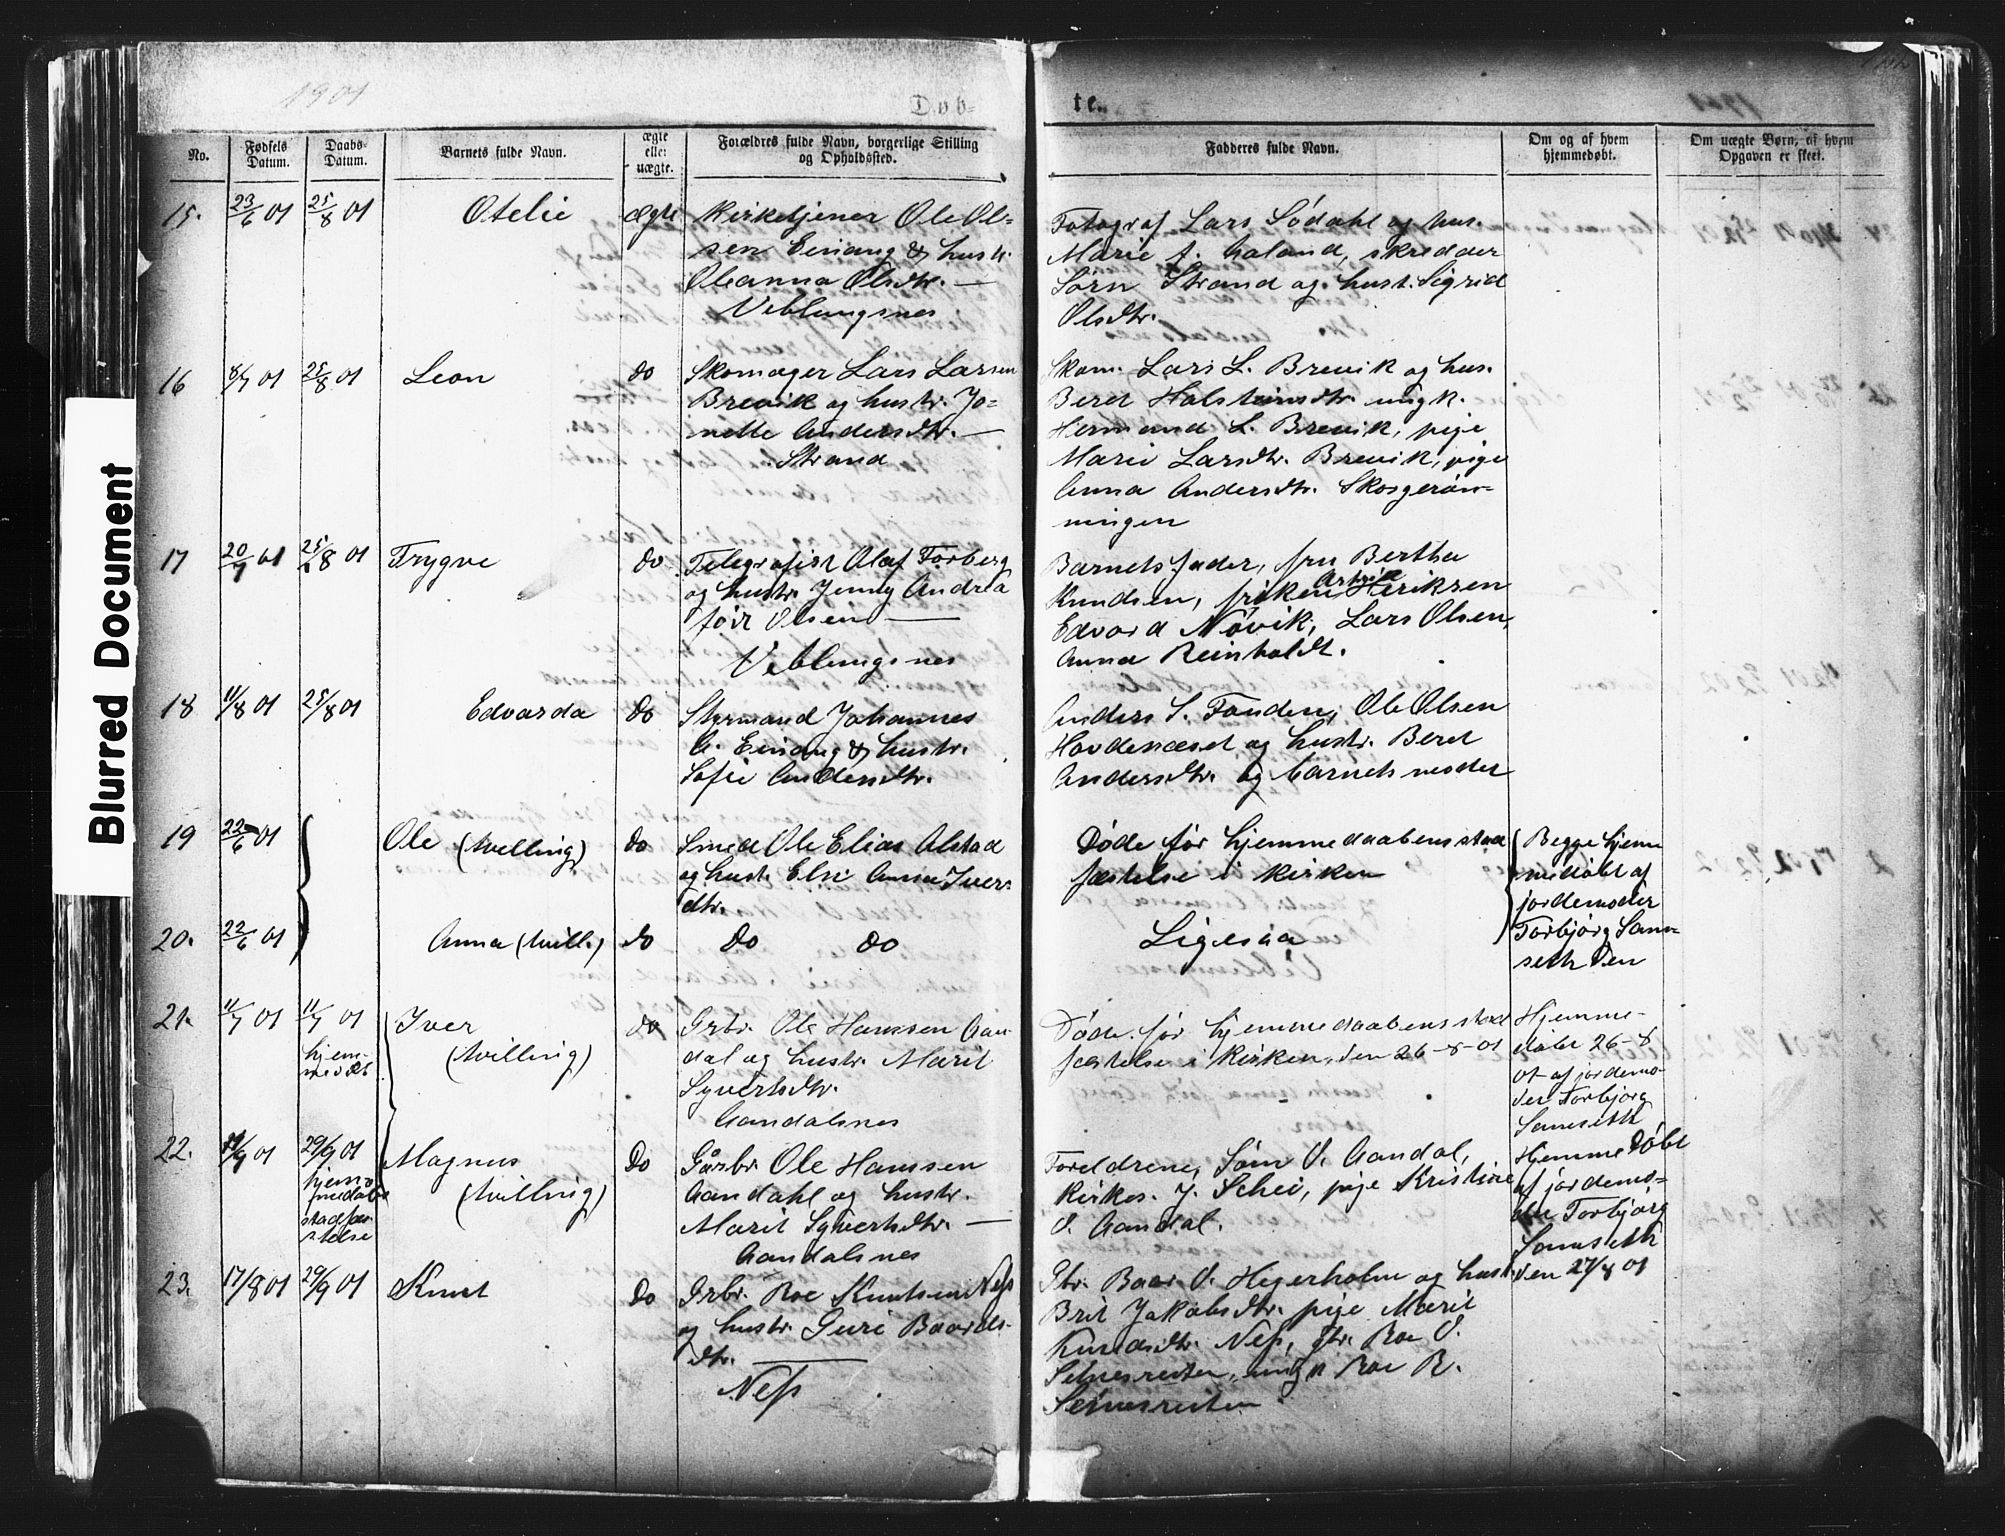 Blurred Document
1901
Døb-
te.
1901
No.
Fødsels Datum.
Daabs-Datum.
Barnets fulde Navn.
ægte eller uægte.
Forældres fulde Navn, borgerlige Stilling
og Opholdssted.
Fadderes fulde Navn.
Om og af hvem
hjemmedøbt.
Om uægte Børn, af hvem
Opgaven er skeet.
15. 23/6 01 25/8 01 Otelie ægte Kirketjener Ole Ol=
sen Einang & hustr.
Oleanna Olsdtr. —
Veblungsnes
Fotograf Lars Södahl og hus.
Marie f. Haland, skredder
Sörn Strand og hust. Sigrid
Olsdtr.
16 8/7 01 25/8 01 Leon do Skomager Lars Larsen
Brevik og hustr. Jo=
nette Andersdtr. —
Strand
Skom. Lars L. Brevik og hus.
Beret Halsteinsdtr. ungk.
Hermand L. Brevik, pige
Marie Larsdtr. Brevik, pige
Anna Andersdtr. Skogerön-
ningen
17 20/7 01 25/8 01 Trygve do Telegrafist Olaf Forberg
og hustr. Jenny Andrea
föit Olsen —
Veblungsnes
Barnets fader, fru Bertha
Knudsen, fröken Eriksen
Edvard Növik, Lars Olsen,
Anna Reinholdt.
18 11/8 01 25/8 01 Edvarda do Styrmand Johannes
A. Einang & hustr.
Sofie Andersdtr.
Anders S. Fonden, Ole Olsen
Hovdenæset og hustr. Beret
Andersdtr. og barnets moder
19 22/6 01 Ole (tvelling) do Smed Ole Elias Alstad
og hust. Else Anna Ivers
dtr.
Döde för hjemmedaabens stad
fæstelse i kirken
Begge hjem
medöbt af
jordemoder
Torbjörg Sam-
seth den
20. 22/6 01 Anna (tvill.) do do do
Ligesaa
21. 11/7 01 11/7 01 Iver do Grbr. Ole Hanssen Aan
hjem-
medöbt
(tvilling)
dal og hustr. Marit
Syvertsdtr.
Aandalsnes
Döde för hjemmedaabens stad
fæstelse i kirken, den 26-8-01
Hjemme-
döbt 26-8
01 af jordemo-
der Torbjörg
Samseth
22. 11/9 01 29/9 01 Magnus do Gårbr. Ole Hanssen
hjem
medöbt
stadfæ-
stelse
(tvilling)
Aandahl og hustr.
Marit Syvertsdtr. —
Aandalsnes
Foreldrene, Sörn O. Aandal,
Kirkes. J. Schei, pige Kristine
O. Aandal.
Hjemmedöbt
af jordemo-
der Torbjörg
Samseth
den 27/8 01
23. 17/8 01 29/9 01 Knut do Grbr. Roe Knutsen Ness
og hustr. Guri Baards-
dtr. —
Ness
Gbr. Baar O. Hegerholm og hust.
Brit Jakobsdtr. pige Marit
Knudsdtr. Ness, Gbr. Roe O.
Setnesreiten, ungk Roe R.
Setnesreiten